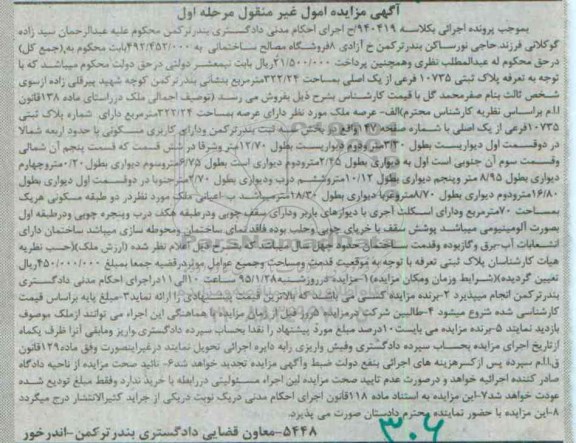 آگهی مزایده اموال غیر منقول مرحله اول
بموجب پرونده اجرائی بکلاسه ۹۴۰۴۱۹/ح اجرای احکام مدنی دادگستری بندرترکمن محکوم علیه عبدالرحمان سید زاده
گوکلانی فرزند حاجی نورساکن بندرترکمن خ آزادی ۸ فروشگاه مصالح ساختمانی به ۴۹۲/۴۵۲/۰۰۰بابت محکوم به,(جمع کل)
درحق محکوم له عبدالمطلب نظری وهمچنین پرداخت ۲۱/۵۰۰/۰۰۰ریال بابت نیمعشر دولتی درحق دولت محکوم میباشد که با
توجه به تعرفه پلاک ثبتی ۱۰۷۳۵ فرعی از یک اصلی بمساحت ۳۲۲/۲۴مترمربع بنشانی بندرترکمن کوچه شهید پیرقلی زاده ازسوی
شخص ثالث بنام صفرمحمد گل با قیمت کارشناس بشرح ذیل بفروش می رسد (توصیف اجمالی ملک درراستای ماده ۱۳۸قانون
ا.ا.م براساس نظریه کارشناس محترم)الف- عرصه ملک مورد نظر دارای عرصه بمساحت ۳۲۲/۲۴مترمربع دارای شماره پلاک ثبتی
۱۰۷۳۵فرعی از یک اصلی با شماره صفحه ۲۷ واقع در بخش سه ثبت بندرترکمن ودارای کاربری مسکونی با حدود اربعه شمالا
در دوقسمت اول دیواریست بطول ۳/۲۰مترودوم دیواریست بطول ۱۲/۷۰متر وشرقا در شش قمست که قسمت پنجم آن شمالی
وقسمت سوم آن جنوبی است اول به دیواری بطول ۲/۴۵مترودوم دیواری است بطول ۶/۷۵متروسوم دیواری بطول ۰/۲۰متروچهارم
دیواری بطول ۸/۹۵ متر وپنجم دیواری بطول ۱۰/۱۲متروششم درب ودیواری بطول ۲/۷۰مترجنوبا در دوقسمت اول دیواری بطول
۱۶/۸۰مترودوم دیواری بطول ۸/۷۰متروغربا دیواری بطول ۲۸/۳۰مترمیباشد ب-اعیانی ملک مورد نظردر دو طبقه مسکونی هریک
بمساحت ۷۰مترمربع ودارای اسکلت آجری با دیوارهای باربر ودارای سقف چوبی ودرطبقه همکف درب وپنجره چوبی ودرطبقه اول
بصورت آلومینیومی میباشد پوشش سقف با خرپای چوبی وحلب بوده فاقد نمای ساختمان ومحوطه سازی میباشد ساختمان دارای
انشعابات آب-برق وگازبوده وقدمت ساختمان حدود چهل سال میباشد که بشرح ذیل اعلام نظر شده (ارزش ملک)(حسب نظریه
هیات کارشناسان پلاک ثبتی تعرفه با توجه به موقعیت قدمت ومساحت وجمیع عوامل موثردرقضیه جمعا بمبلغ ۴۵۰/۰۰۰/۰۰۰ریال
تعیین گردیده)(شرایط وزمان ومکان مزایده)۱-مزایده درروزشنبه۹۵/۱/۲۸ ساعت ۱۰الی ۱۱دراجرای احکام مدنی دادگستری
بندرترکمن انجام میپذیرد ۲-برنده مزایده کسی می باشند که بالاترین قیمت پیشنهادی را ارائه نماید۳-مبلغ پایه براساس قیمت
کارشناسی شده شروع میشود ۴-طالبین شرکت درمزایده قبل از زمان مزایده با هماهنگی این اجراء می توانند ازملک موصوف
بازدید نمایند ۵-برنده مزایده می بایست ۱۰درصد مبلغ مورد پیشنهاد را نقدا بحساب سپرده دادگستری واریز ومابقی آنرا ظرف یکماه
ازتاریخ اجرای مزایده بحساب سپرده دادگستری وفیش واریزی رابه دایره اجرائی تحویل نمایند درغیراینصورت وفق ماده۱۲۹قانون
ق.ا.ا.م سپرده پس از کسرهزینه های اجرائی بنفع دولت ضبط وآگهی مزایده تجدید خواهد شد۶- تائید صحت مزایده از ناحیه دادگاه
صادر کننده اجرائیه خواهد و درصورت عدم تایید صحت مزایده این اجراء مسئولیتی دررابطه با خرید ندارد وفقط مبلغ تودیع شده
عودت خواهد شد۷-این مزایده به استناد ماده ۱۱۸قانون اجرای احکام مدنی دریک نوبت دریکی از جراید کثیرالانتشار درج میگردد
۸-این مزایده با حضور نماینده محترم دادستان صورت می پذیرد.
۵۴۴۸-معاون قضایی دادگستری بندرترکمن-اندرخور
۳۰۶